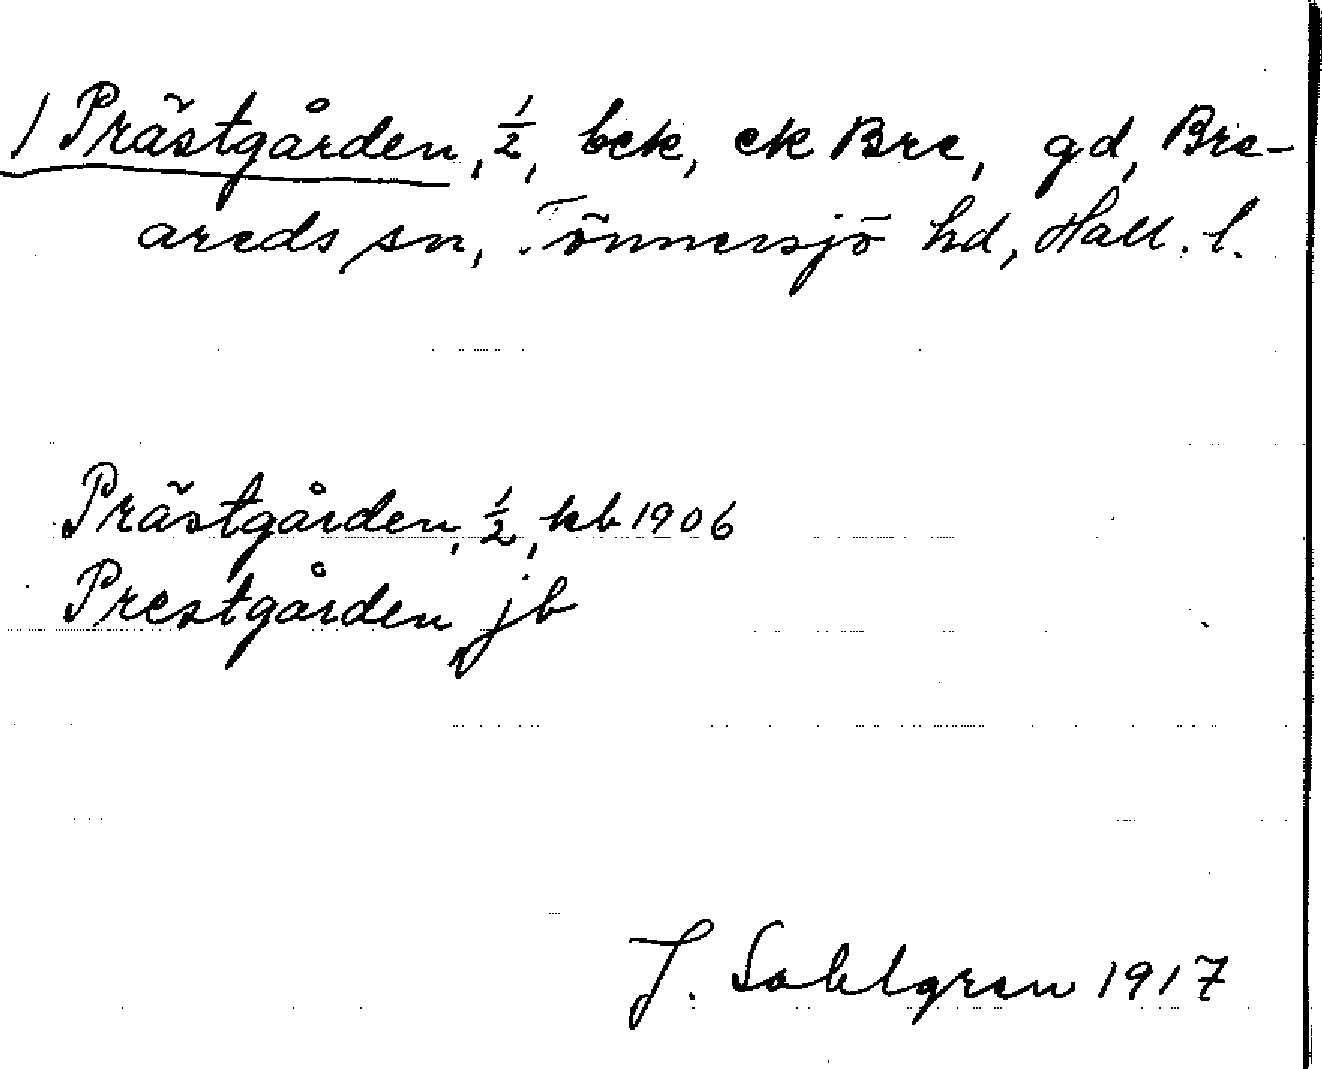 / Prästgården, ½, bck, ek Bre, gd, Bre-
areds sn, Tönnersjö hd, Hall. l.
Prästgården, ½, kb 1906
Prestgården jb
J. Sahlgren 1917